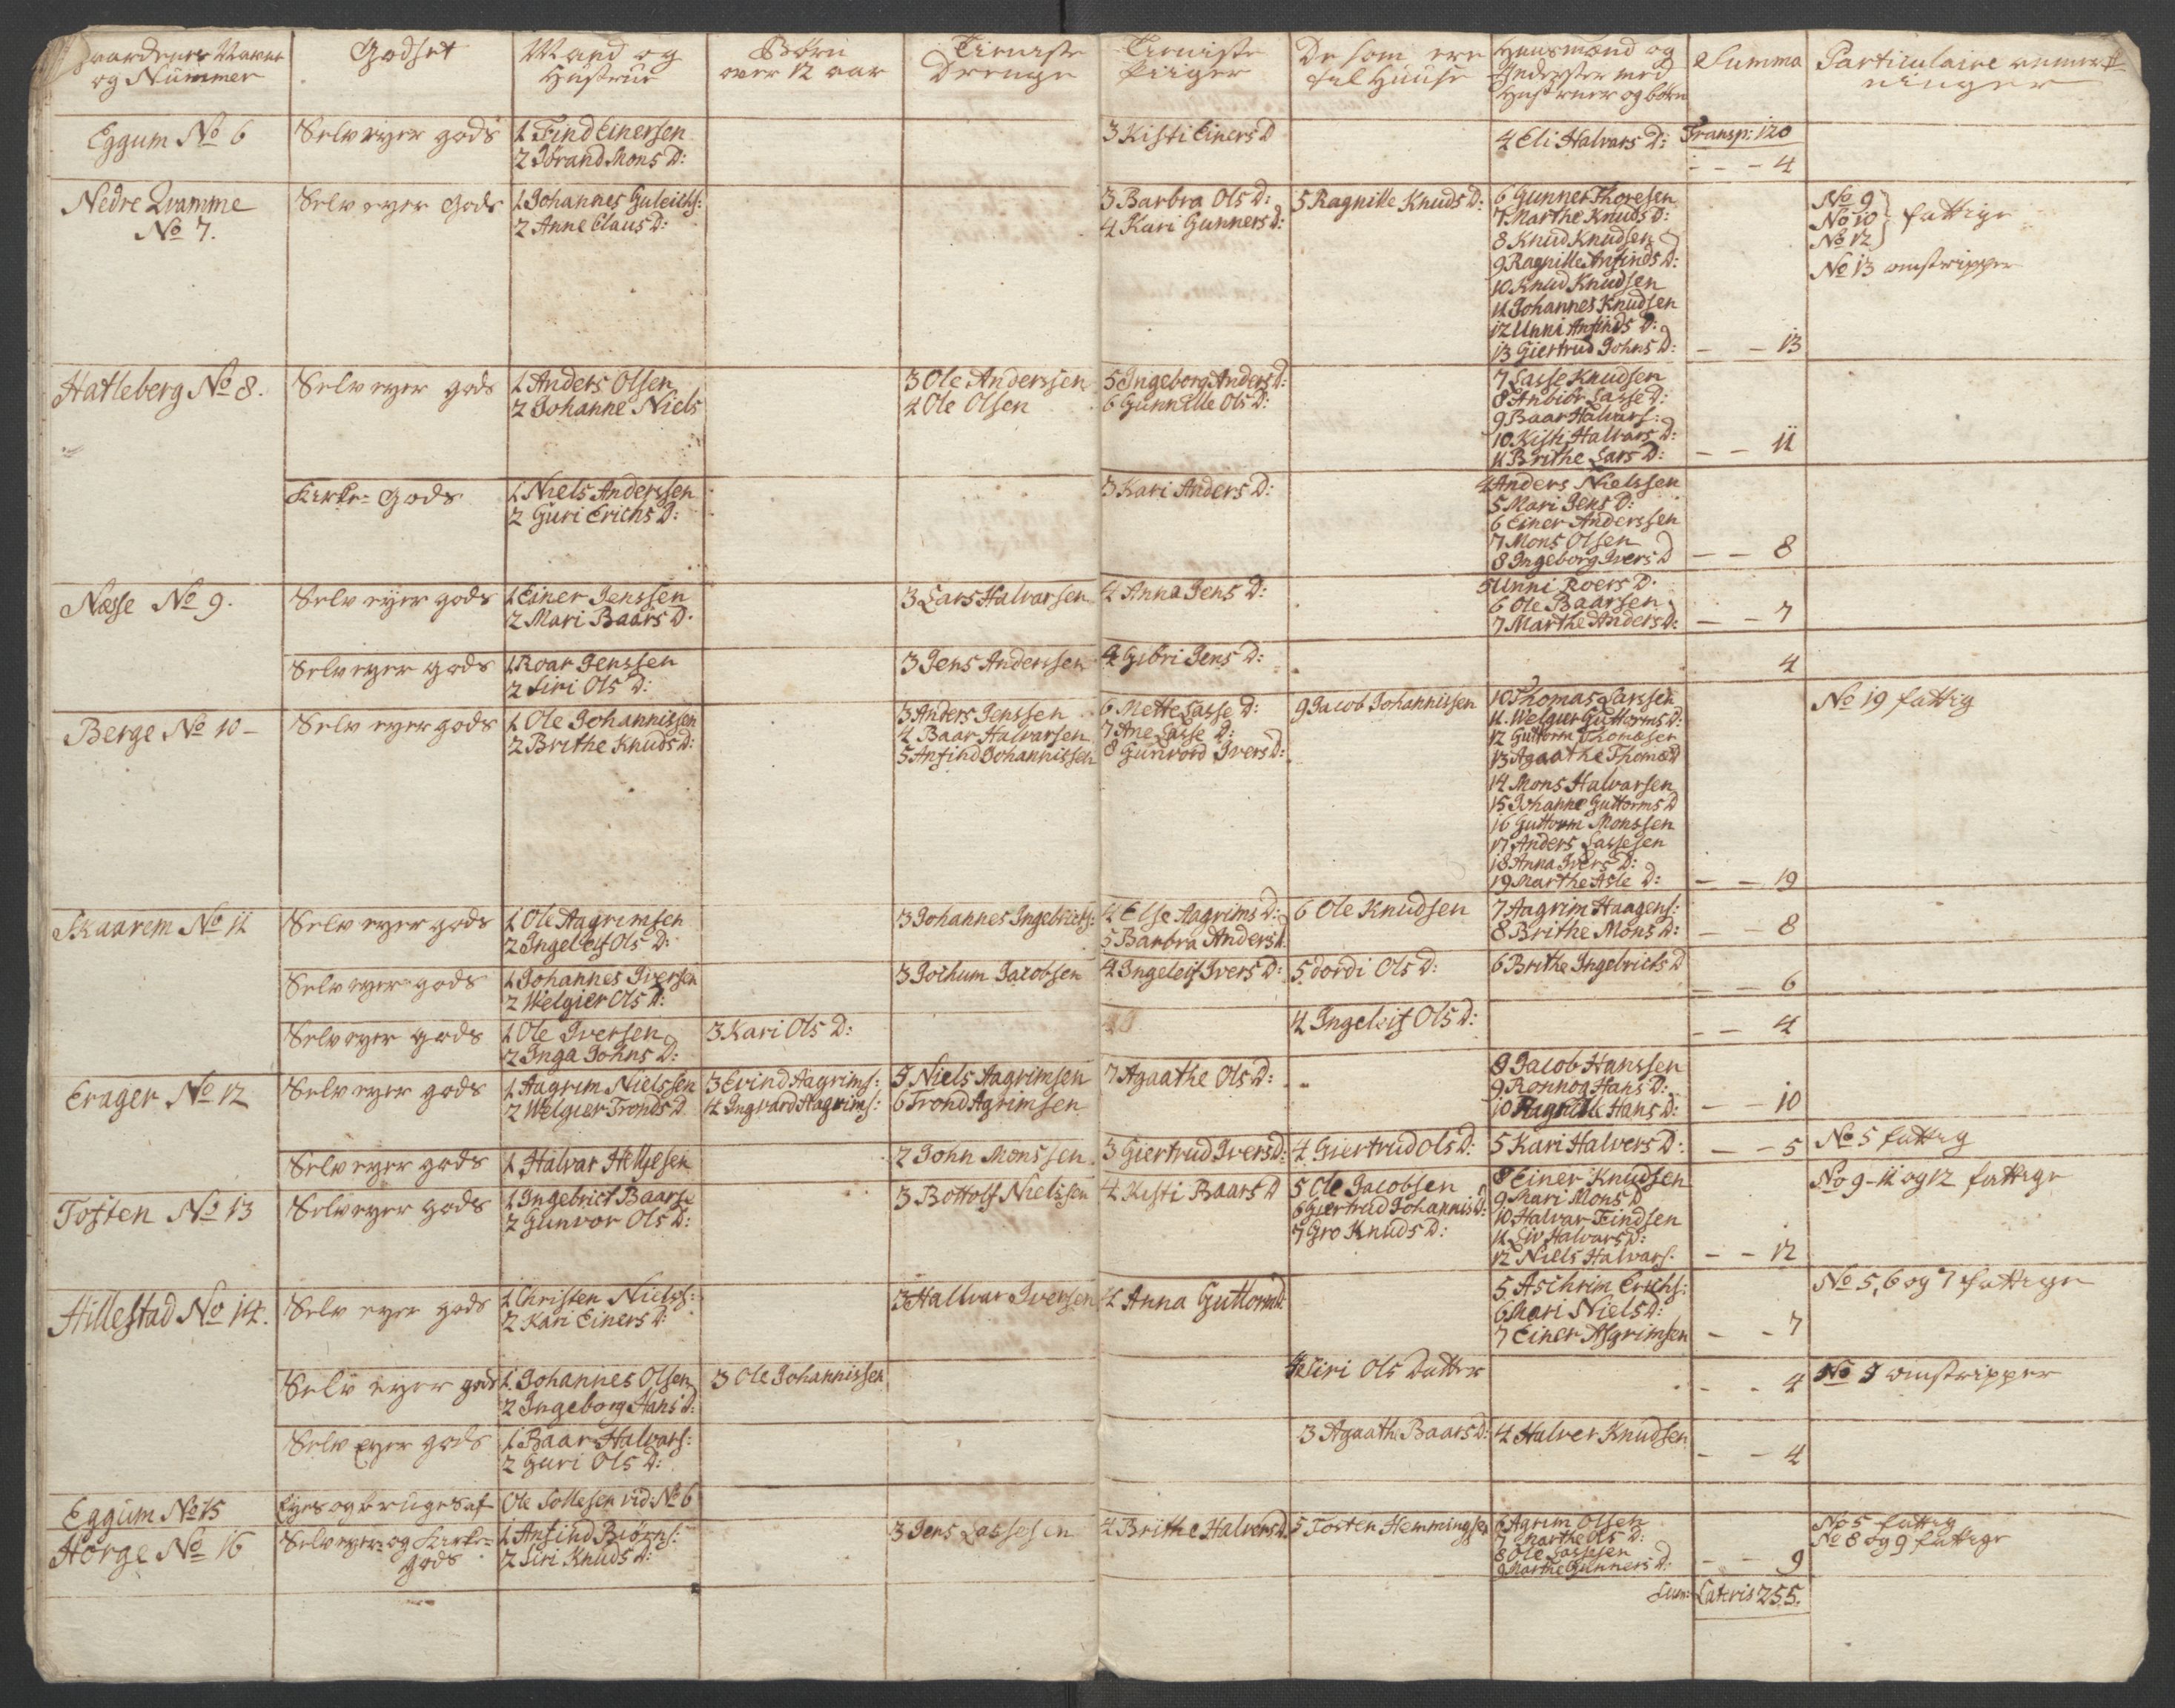 Gaardenes Navne og Nummer
Godset
Mand og Hustrue
Børn over 12 aar
Tieniste Drenge
Tieniste Piiger
De som ere til Huuse
Huusmænd og Inderster med Hustruer og børn
Summa
Particulaire anmerkninger
Eggum No 6
Selv eyer gods
1 Find Einersen
2 Jørand Mons D:
3 Kisti Einers D
4 Eli Halvars D:
Transp: 120
- - 4
Nedre Qvamme
No 7.
Selv eyer Gods
1 Johannes Guleichs:
2 Anne Claus D:
3 Barbra Ols D:
4 Kari Gunners D:
5 Ragnille Knuds D:
6 Gunner Thoresen
7 Marthe Knuds D:
8 Knud Knudsen
9 Ragnille Anfinds D:
10 Knud Knudsen
11 Johannes Knudsen
12 Unni Anfinds D:
13 Giertrud Johns D:
- - 13
No 9
No 10 fattige
No 12
No 13 omstripper
Hatleberg No 8.
Selv eyer gods
1 Anders Olsen
2 Johanne Niels
3 Ole Anderssen
4 Ole Olsen
5 Ingeborg Anders D:
6 Gunnille Ols D:
7 Lasse Knudsen
8 Anbiør Lasse D:
9 Baar Halvars:
10 Kisti Halvars D:
11 Brithe Lars D:
- - 11
Kirke-Gods
1 Niels Anderssen
2 Guri Erichs D:
3 Kari Anders D:
4 Anders Nielssen
5 Mari Jens D:
6 Einer Anderssen
7 Mons Olsen
8 Ingeborg Ivers D
- - 8
Næsse No 9.
Selv eyer gods
1 Einer Jenssen
2 Mari Baars D:
3 Lars Halvarsen
4 Anna Jens D:
5 Unni Roers D:
6 Ole Baarsen
7 Marthe Anders D:
- - 7
Selv eyer gods
1 Roar Jenssen
2 Siri Ols D:
3 Jens Anderssen
4 Gibri Jens D:
4
Berge No 10 -
Selv eyer gods
1 Ole Johannissen
2 Brithe Knuds D:
3 Anders Jenssen
4 Baar Halvarsen
5 Anfind Johannissen
6 Mette Lasse D:
7 Ane Lasse D:
8 Gunvord Ivers D:
9 Jacob Johannissen
10 Thomas Larssen
11 Welgier Guttorms D:
12 Guttorm Thomæsen
13 Agaathe Thomæ D
14 Mons Halvarsen
15 Johanne Guttorms D
16 Guttorm Monssen
17 Anders Lassesen
18 Anna Ivers D:
19 Marthe Asle D:
- - 19
No 19 fattig
Skaarem No 11
Selv eyer gods
1 Ole Aagrimsen
2 Ingeleif Ols D:
3 Johannes Ingebrichs:
4 Else Aagrims D:
5 Barbra Anders D.
6 Ole Knudsen
7 Aagrim Haagens:
8 Brithe Mons D:
- - 8
Selv eyer gods
1 Johannes Iversen
2 Welgier Ols D:
3 Jochum Jacobsen
4 Ingeleif Ivers D:
5 Dordi Ols D:
6 Brithe Ingebricts D
- - 6
Selv eyer gods
1 Ole Iversen
2 Inga Johns D:
3 Kari Ols D:
4 Ingeleif Ols D:
- - 4
Erager No 12
Selv eyer gods
1 Aagrim Nielssen
2 Welgier Tronds D
3 Evind Aagrims:
4 Ingvard Aagrims:
5 Niels Aagrimsen
6 Trond Agrimsen
7 Agaathe Ols D:
8 Jacob Hanssen
9 Ronnog Hans D:
10 Ragnille Hans D:
- - 10
Selv eyer gods
1 Halvar Hellgesen
2 John Monssen
3 Giertrud Ivers D:
4 Giertrud Ols D:
5 Kari Halvers D:
- - 5
No 5 fattig
Toften No 13
Selv eyer gods
1 Ingebrict Baarse
2 Gunvor Ols D:
3 Bottolf Nielssen
4 Kisti Baars D
5 Ole Jacobsen
6 Giertrud Johannis D:
7 Gro Knuds D:
8 Einer Knudsen
9 Mari Mons D
10 Halvar Findsen
11 Liv Halvars D:
12 Niels Halvars:
- - 12
No 9-11 og 12 fattige
Hillestad No 14.
Selv eyer gods
1 Christen Nielss:
2 Kari Einers D:
3 Hallvar Iversen
4 Anna Guttorms D:
5 Aschrim Erichs:
6 Mari Niels D:
7 Einer Asgrimsen
- - 7
No 5, 6 og 7 fattige
Selv eyer gods
1 Johannes Olsen
2 Ingeborg Hans D:
3 Ole Johannissen
4 Siri Ols Datter
- - 4
No 9 omstripper
Selv Eyer gods
1 Baar Halvars:
2 Guri Ols D:
3 Agaathe Baars D:
4 Halver Knudsen
- - 4
Eggum No 15
Eyes og bruges af
Ole Sollesen vid: No 6
Hörge No 16
Selv eyer og Kirke-
gods
1 Anfind Biørns:
2 Siri Knuds D:
3 Jens Lassesen
4 Brithe Halvers D.
5 Tosten Hemmingsen
6 Agrim Olsen
7 Marthe Ols D:
8 Ole Lassesen
9 Marthe Gunners D.
- - 9
No 5 fattig
No 8 og 9 fattige
Sum: Lateris 255.